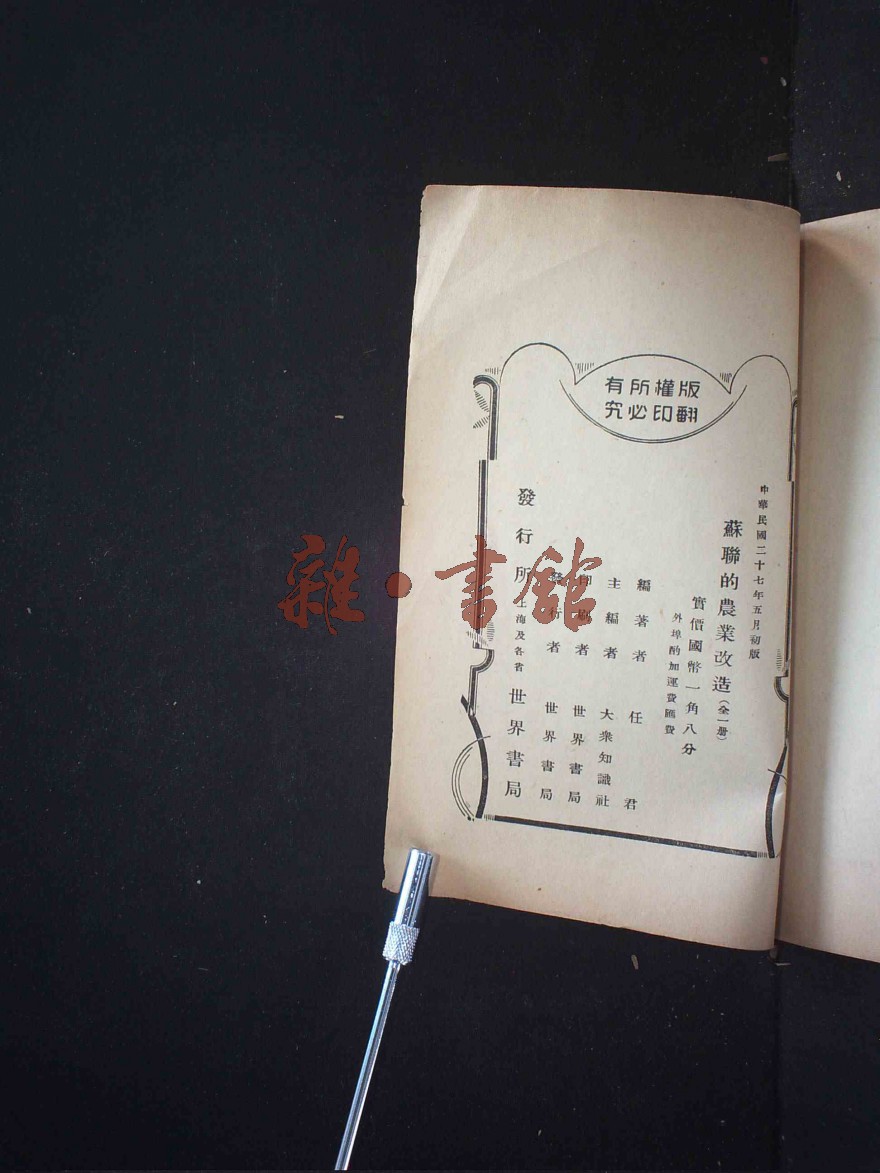 版權所有
翻印必究
中華民國二十七年五月初版
蘇聯的農業改造（全一册）
實價國幣一角八分
外埠酌加運費匯費
編著者 任君
主編者 大衆知識社
印刷者 世界書局
發行者 世界書局
發行所 上海及各省 世界書局
雜·書館